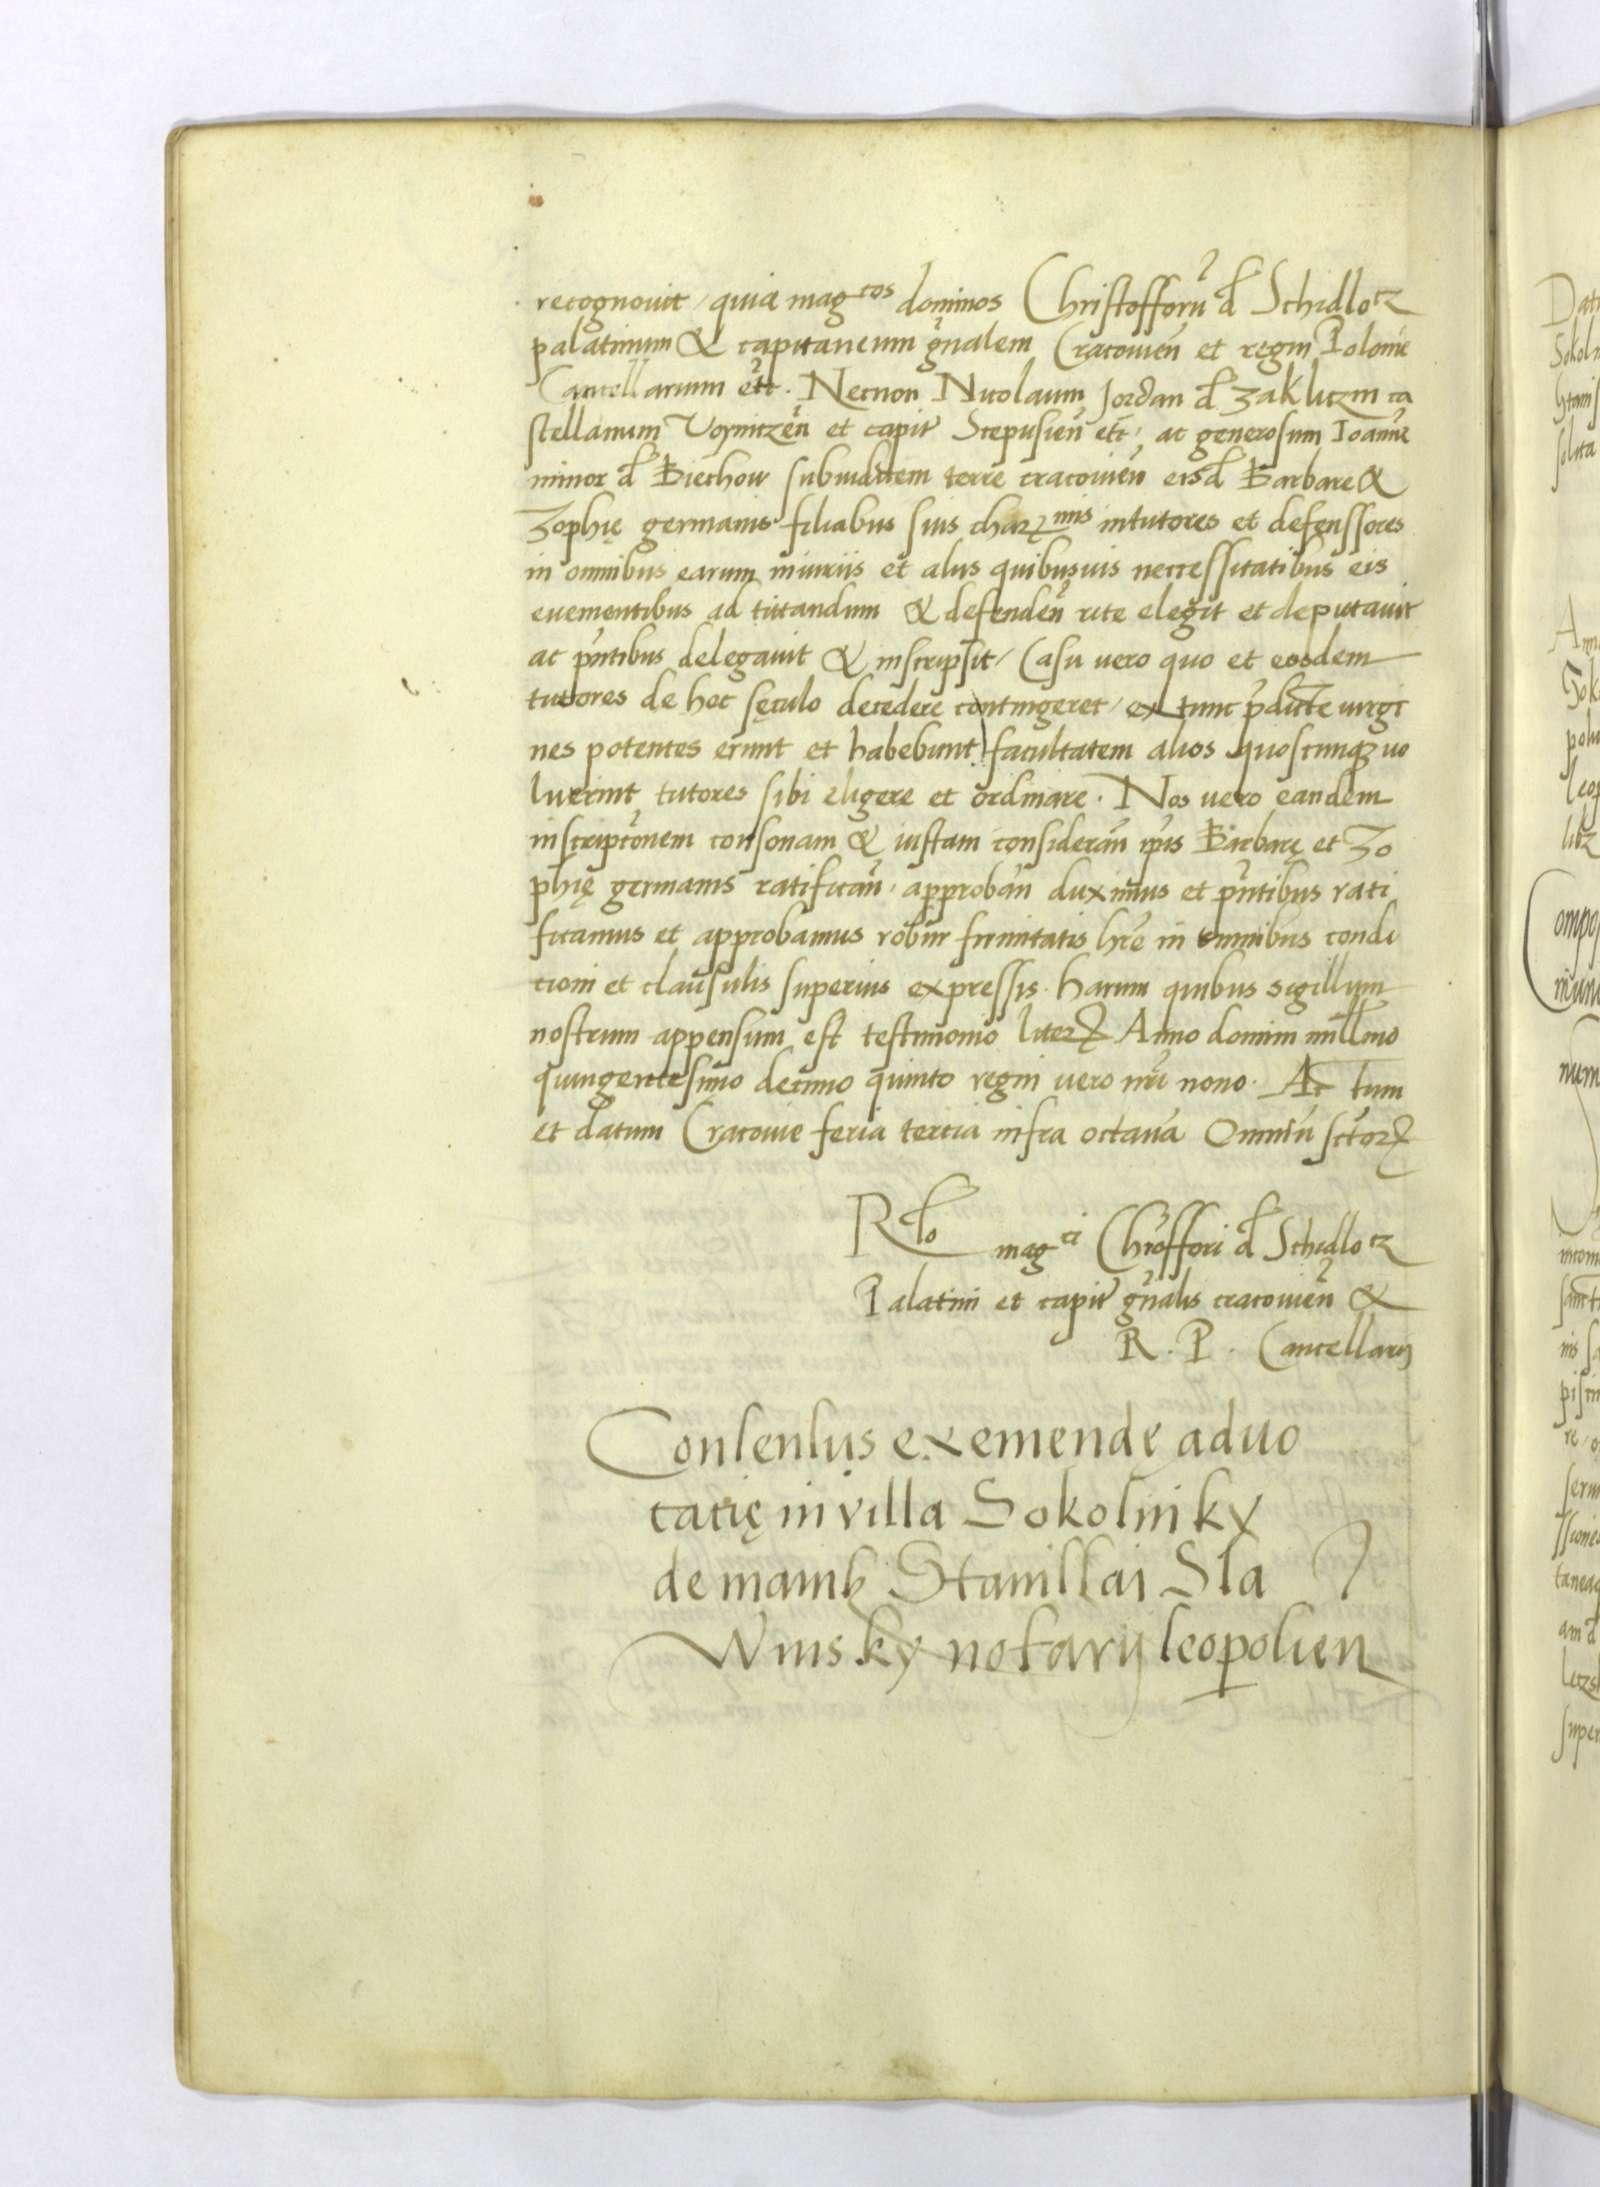 recognovit / quia mag^cos dominos Christofforū d Schidlo tz
palatinum & capitaneum gn̄alem Cracovien̄ et regni Polonie
Cancellarium etc̄. Necnon Nicolaum Jordan d Zaklitzin ca
stellanum Voynitzen̄ et capit̄ Scepusien̄ etc̄, ac generosum Ioannē
minor d Biechow subiudicem terre cracovien̄ eisd Barbare &
Zophię germanis filiabus suis charꝫ^mis in tutores et defenssores
in omnibus earum iniuriis et aliis quibusvis necessitatibus eis
evenientibus ad tutandum & defenden̄ rite elegit et deputavit
ac pn̄tibus delegavit & inscripsit / Casu vero quo et eosdem
tutores de hoc sęculo decedere contingeret / ex tunc p̄dicte virgi
nes potentes erunt et habebunt facultatem alios quoscunqꝫ vo
luerint tutores sibi eligere et ordinare. Nos vero eandem
inscripc̄onem consonam & iustam consideran̄ ip̄is Barbarę et Zo
phię germanis ratifican̄, approban̄ duximus et pn̄tibus rati
ficamus et approbamus robur firmitatis hr̄e in omnibus condi
cioni et clausulis superius expressis. harum quibus sigillum
nostrum appensum est testimonio literꝝ Anno domini mill̄mo
quingentesimo decimo quinto regni vero nr̄i nono. Ac tum
et datum Cracovie feria tercia infra octavā Omniū sctōrꝝ
R^lo mag^ci Chrōffori d Schidlo tz
Palatini et capit̄ gn̄alis cracovien̄ &
R. P. Cancellarij
Consensus exemendę advo
catię in villa Sokolniky
de manibꝫ Stanislai Sla
winsky notarij leopolien